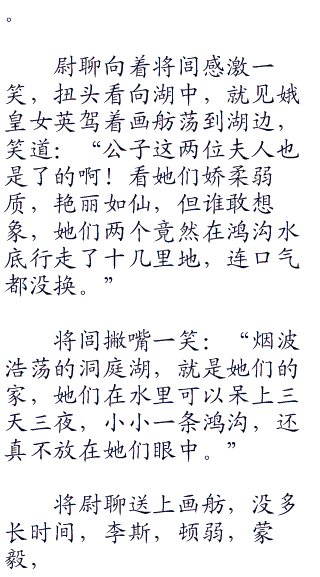 。
尉聊向着将闾感激一
笑，扭头看向湖中，就见娥
皇女英驾着画舫荡到湖边，
笑道：“公子这两位夫人也
是了的啊！看她们娇柔弱
质，艳丽如仙，但谁敢想
象，她们两个竟然在鸿沟水
底行走了十几里地，连口气
都没换。”
将闾撇嘴一笑：“烟波
浩荡的洞庭湖，就是她们的
家，她们在水里可以呆上三
天三夜，小小一条鸿沟，还
真不放在她们眼中。”
将尉聊送上画舫，没多
长时间，李斯，顿弱，蒙
毅，